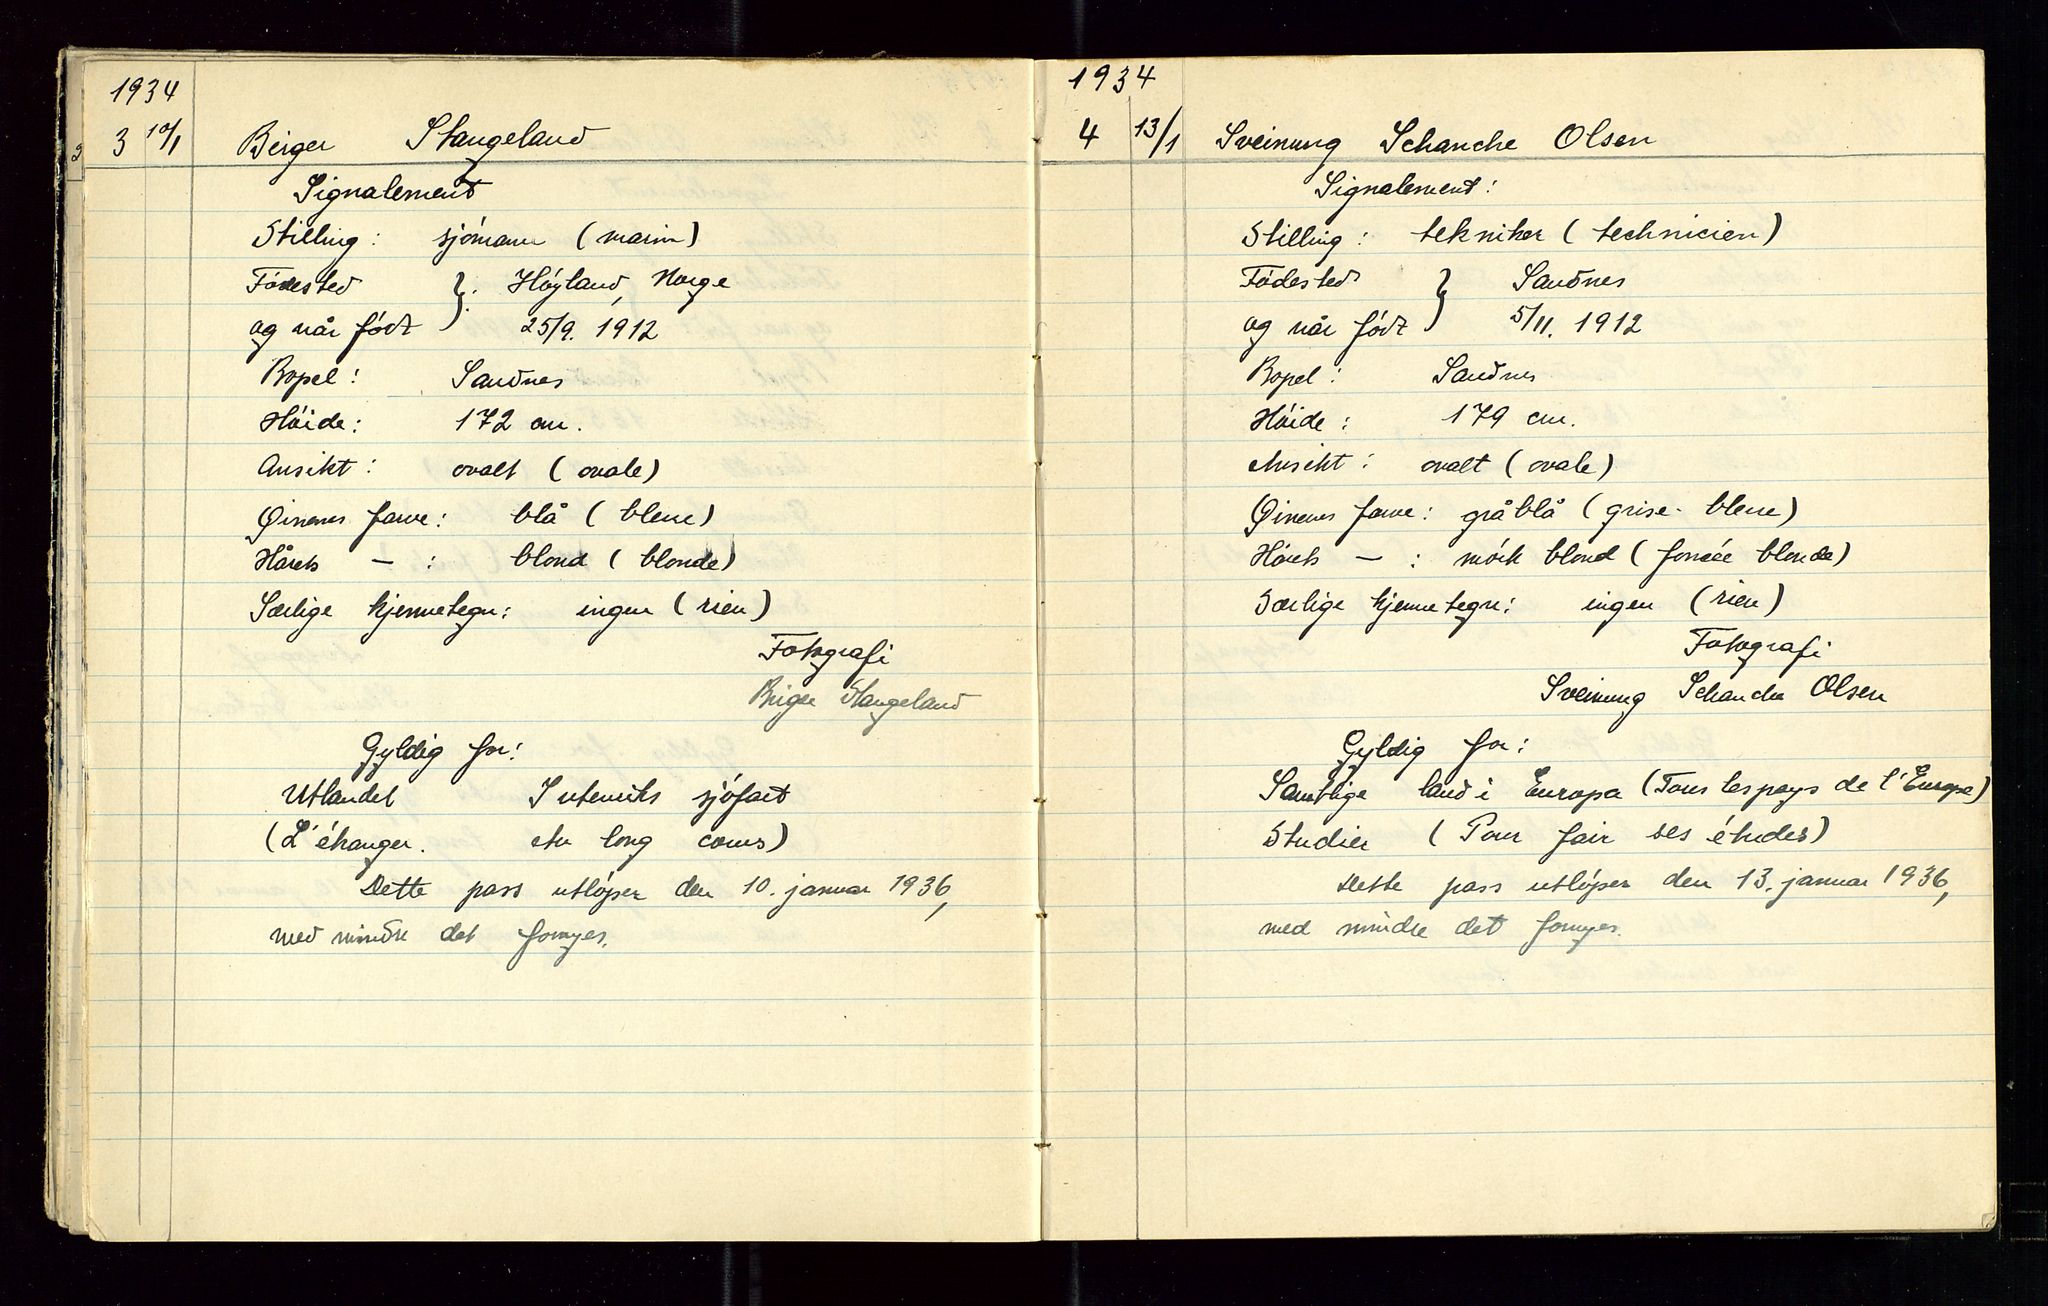 1934
3 10/1 Birger Stangeland
Signalement
Stilling: sjómann (marin)
Fódested
og når fódt }: Hóyland, Norge
25/9. 1912
Bopel: Sandnes
Hóide: 172 cm.
Ansikt: ovalt (ovale)
Øinenes farve: blå (bleue)
Hårets — : blond (blonde)
Særlige kjennetegn: ingen (rien)
Fotografi
Birger Stangeland
Gyldig for:
Utlandet Inteniks sjófart
(L'étranger. etu long cours)
Dette pass utlóper den 10. januar 1936,
med mindre det fornyes.
1934
4 13/1 Sveinung Schanche Olsen
Signalement:
Stilling: tekniker (technicien)
Fódested
og når fódt } Sandnes
5/11. 1912
Bopel: Sandnes
Hóide: 179 cm.
Ansikt: ovalt (ovale)
Øinenes farve: gråblå (grise-bleue)
Hårets — : mórk blond (foncée blonde)
Særlige kjennetegn: ingen (rien)
Fotografi
Sveinung Schanche Olsen
Gyldig for:
Samtlige land i Europa (Tous les pays de l'Europe)
Studier (Pour fair ses études)
Dette pass utlóper den 13. januar 1936,
med mindre det fornyes.